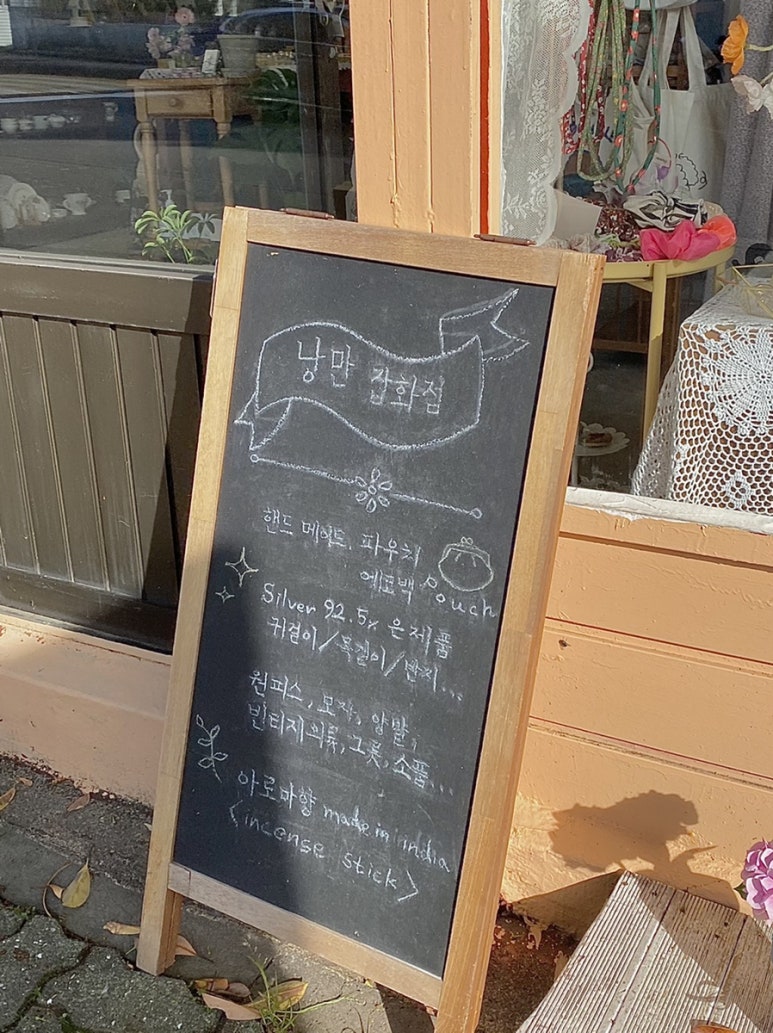 낭만 잡화점
핸드 메이드, 파우치
에코백 Pouch
Silver 92.5% 은제품
귀걸이/목걸이/반지...
원피스, 모자, 양말,
빈티지의류, 그릇, 소품...
아로마향 made in india
<incense stick>